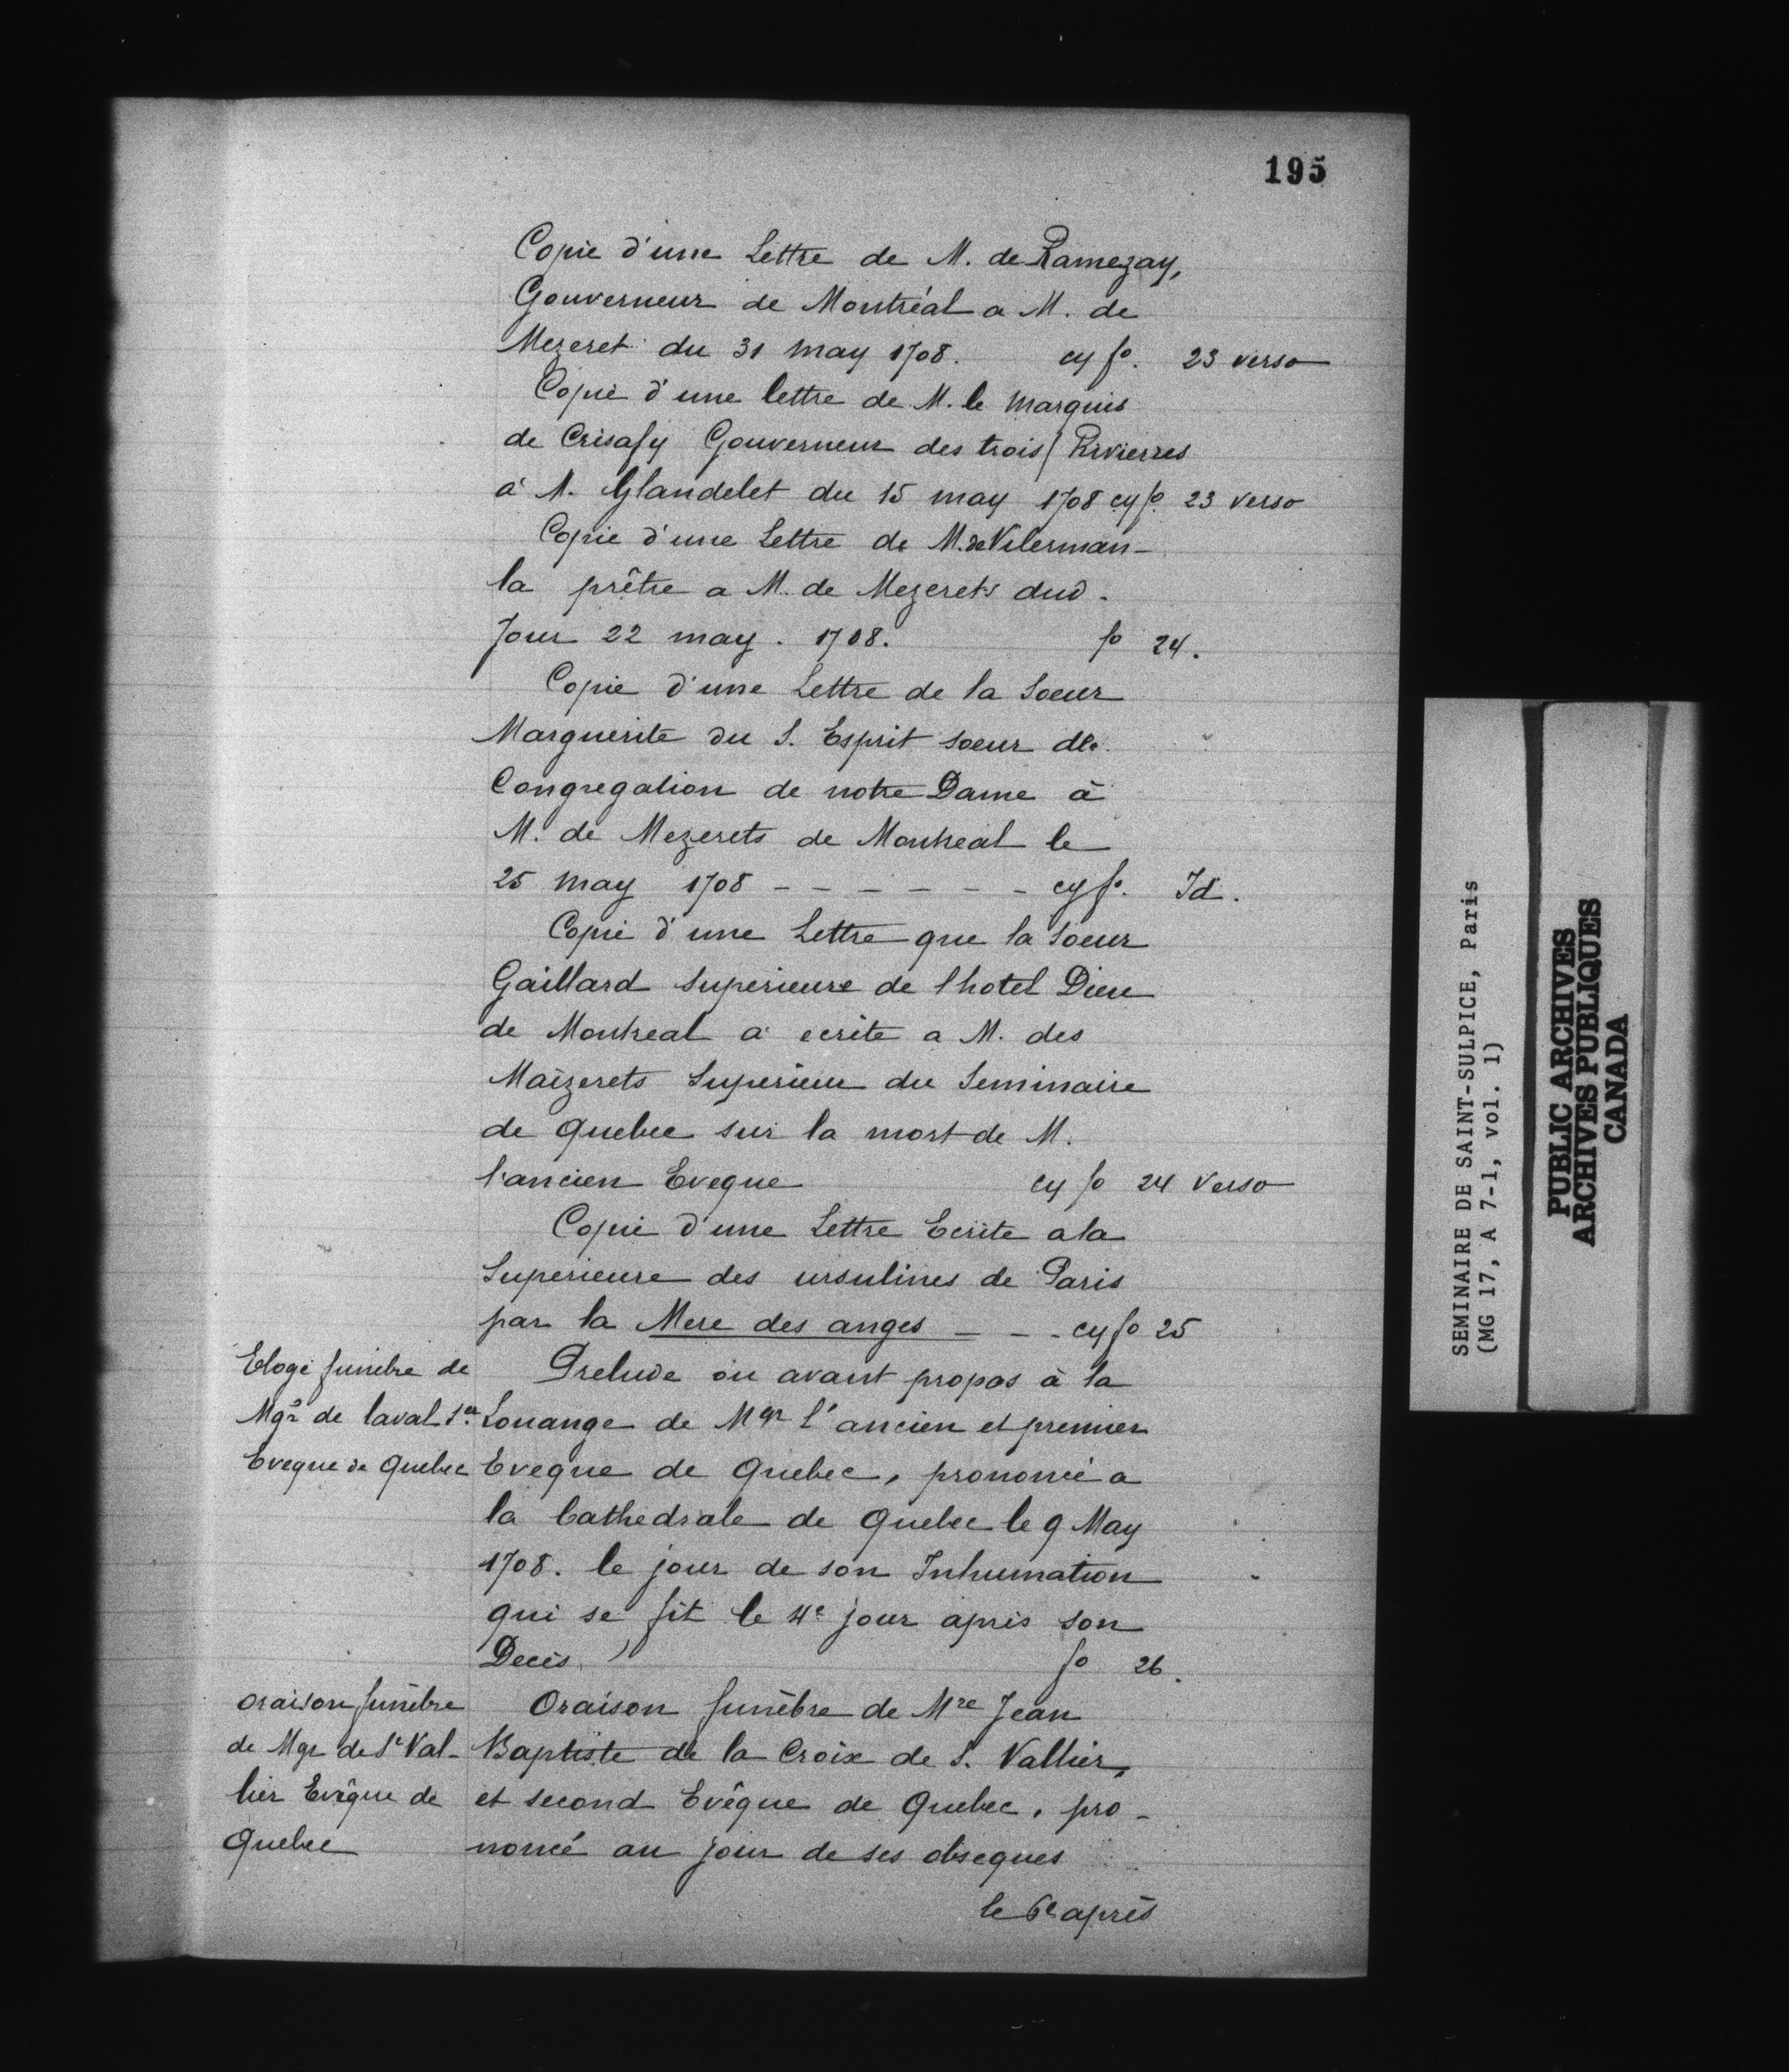 195
Copie d'une Lettre de M. de Ramezay,
Gouverneur de Montréal a M. de
Mezeret du 31 may 1708. cy fo. 23 verso
Copie d'une lettre de M. le Marquis
de Crisafy Gouverneur des trois Rivierres
à M. Glandelet du 15 may 1708 cy fo. 23 verso
Copie d'une Lettre de M. de Vilerman-
la prêtre a M. de Mezerets dud.
Jour 22 may. 1708. fo 24.
Copie d'une Lettre de la Soeur
Marguerite du S. Esprit soeur de
Congregation de notre Dame à
M. de Mezerets de Montreal le
25 May 1708 - - - - - - - cy fo. Id.
Copie d'une Lettre que la Soeur
Gaillard Superieure de l hotel Dieu
de Montreal a ecrite a M. des
Maizerets Superieur du Seminaire
de Quebec sur la mort de M.
l'ancien Eveque cy fo 24 Verso
Copie d'une Lettre Ecrite a la
Superieure des ursulines de Paris
par la Mere des anges - - - cy fo 25
Eloge funebre de
Mgr de laval 1er
Eveque de Quebec
Prelude ou avant propos à la
Louange de Mgr l'ancien et premier
Eveque de Quebec, prononcé a
la Cathedrale de Quebec le 9 May
1708. le jour de son Inhumation
qui se fit le 4e jour après son
Decès. fo 26.
oraison funèbre
de Mgr de St Val-
lier Evêque de
Quebec
Oraison funèbre de Mre Jean
Baptiste de la Croix de S. Vallier,
et second Evêque de Quebec, pro-
noncé au jour de ses obseques
le 6e après
SEMINAIRE DE SAINT-SULPICE, Paris
(MG 17, A 7-1, vol. 1)
PUBLIC ARCHIVES
ARCHIVES PUBLIQUES
CANADA